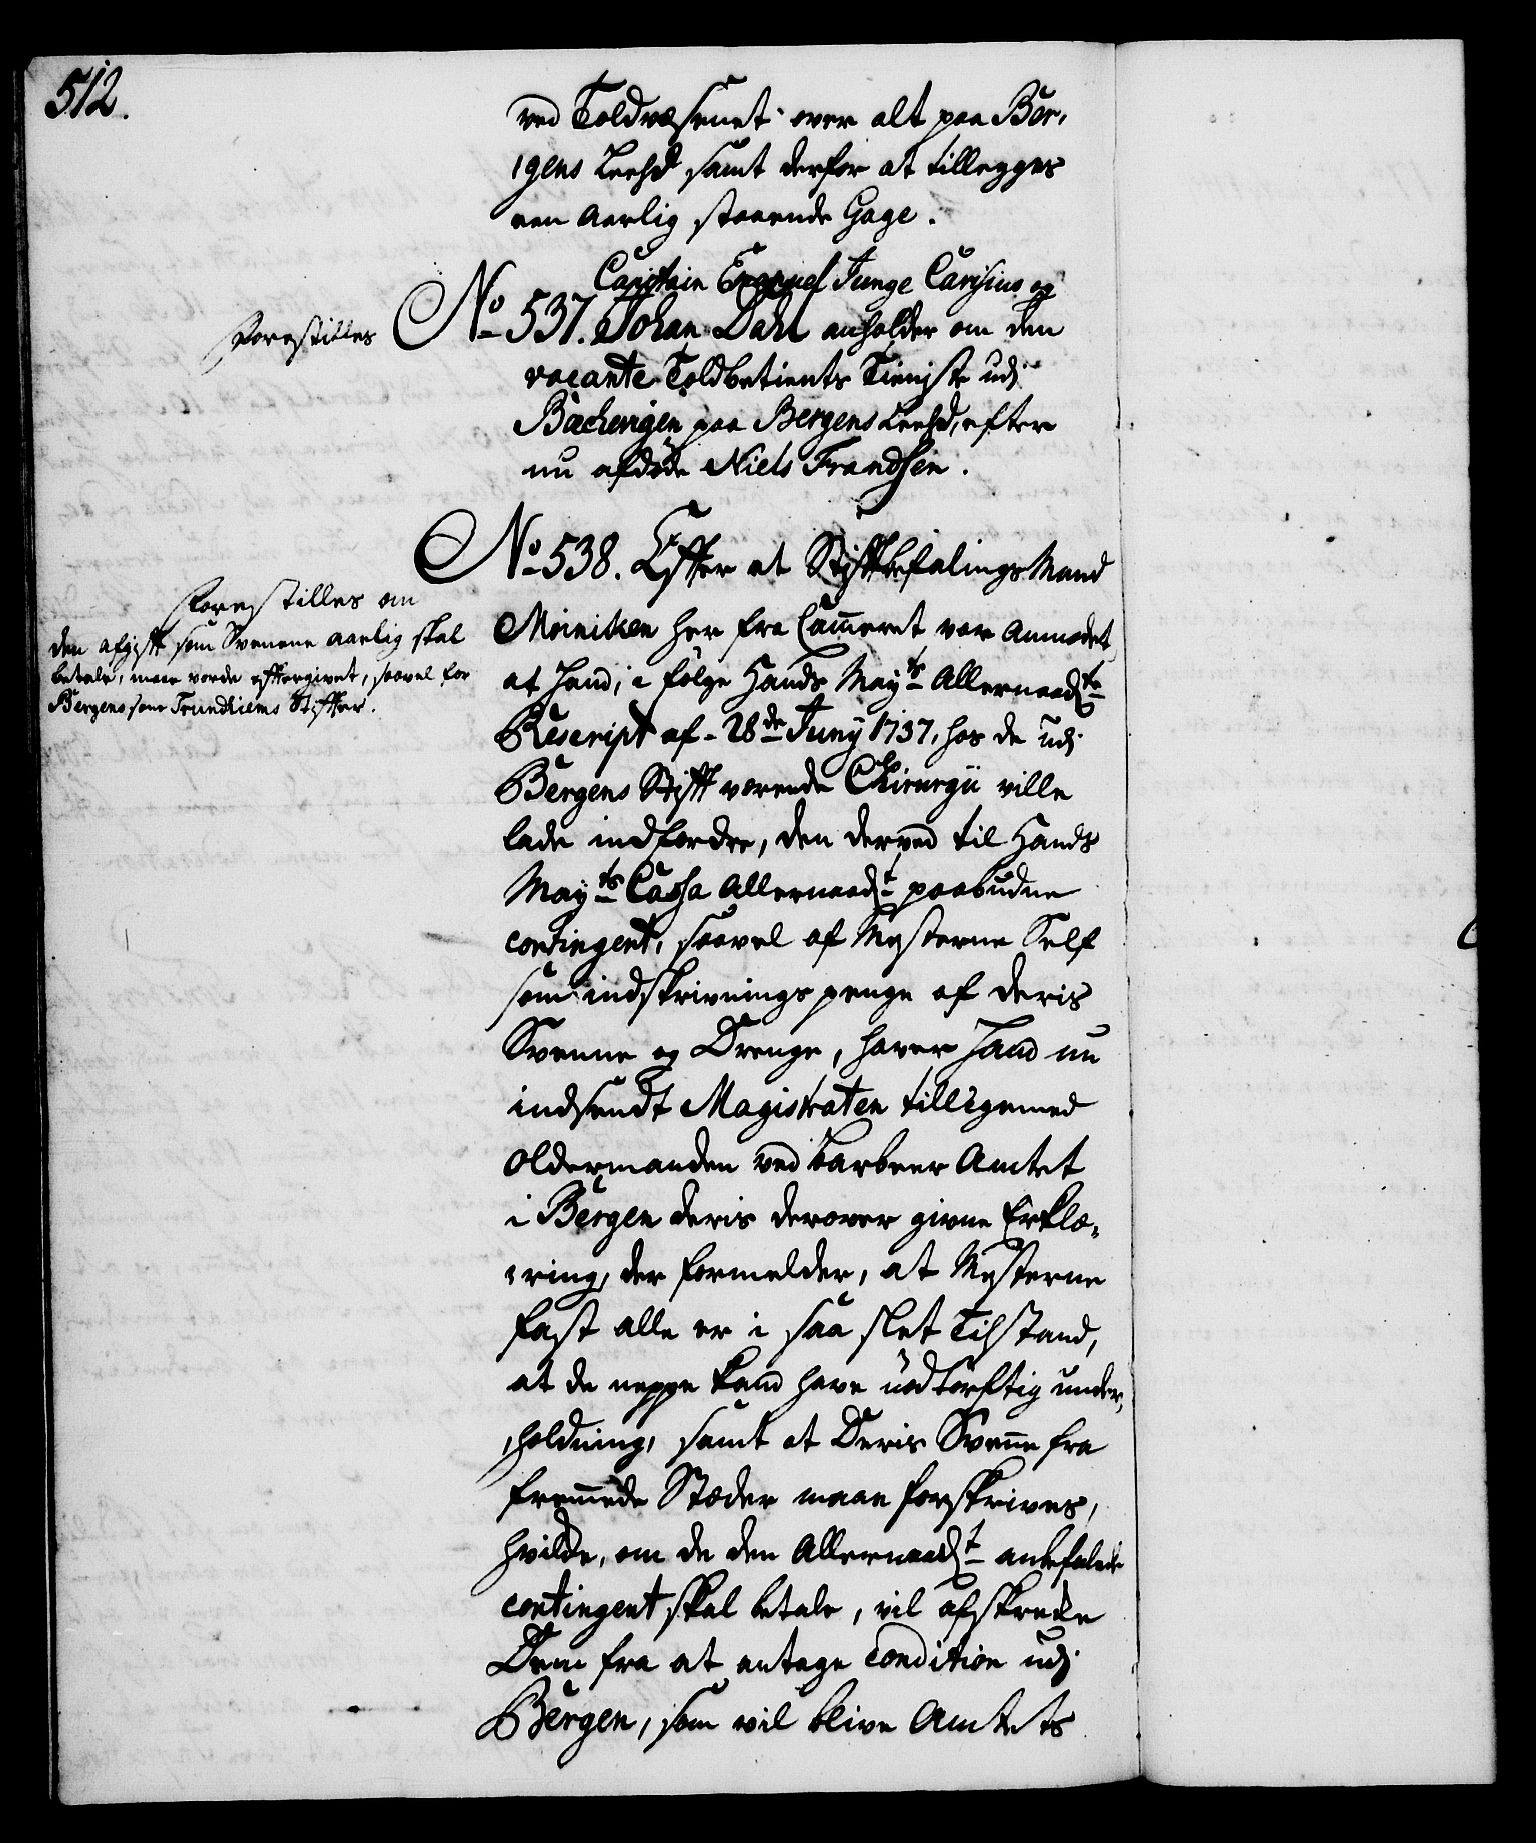 512.
ved Toldvæsenet over alt paa Ber,
,gens Leehd samt derfor at tillegges
een Aarlig staaende Gage.
Capitain Junge Carisius og
Forestilles
No 537. Johan Dahl anholder om den
vacante Toldbetients Tieniste udj
Bæchervigen paa Bergens Leehd, efter
nu afdøde Niels Frandsen.
No 538. Effter at Stiftbefalings Mand
Forestilles om
den afgift som Svenene aarlig skal
betale, maae vorde efftergivet, saavel for
Bergens som Trundhiems Stiffter.
Møiniken her fra Cammeret var Anmodet,
at hand, i følge Hands Mayts Allernaadste
Rescript af 28de Junij 1737, hos de udj
Bergens Stift værende Chirurgii ville
lade indfordre, den derved til Hands
Mayts Cassa Allernaadst paabudne
contingent, saavel af Mesterne Self
som indskrivnings penge af deris
Svenne og Drenge, haver hand nu
indsendt Magistraten tilligemed
Oldermanden ved Barbeer Amtet
i Bergen deris derover givne Erklæ,
,ring, der formelder, at Mesterne
fast alle er i saa slet Tilstand,
at de neppe kand have nødtørftig under,
,holdning, samt at Deris Svenne fra
fremmede Stæder maae forskrives,
hvilcke, om de den Allernaadst anbefalede
contingent skal betale, vil afskrecke
Dem fra at antage condition udj
Bergen, som vil blive Amtets